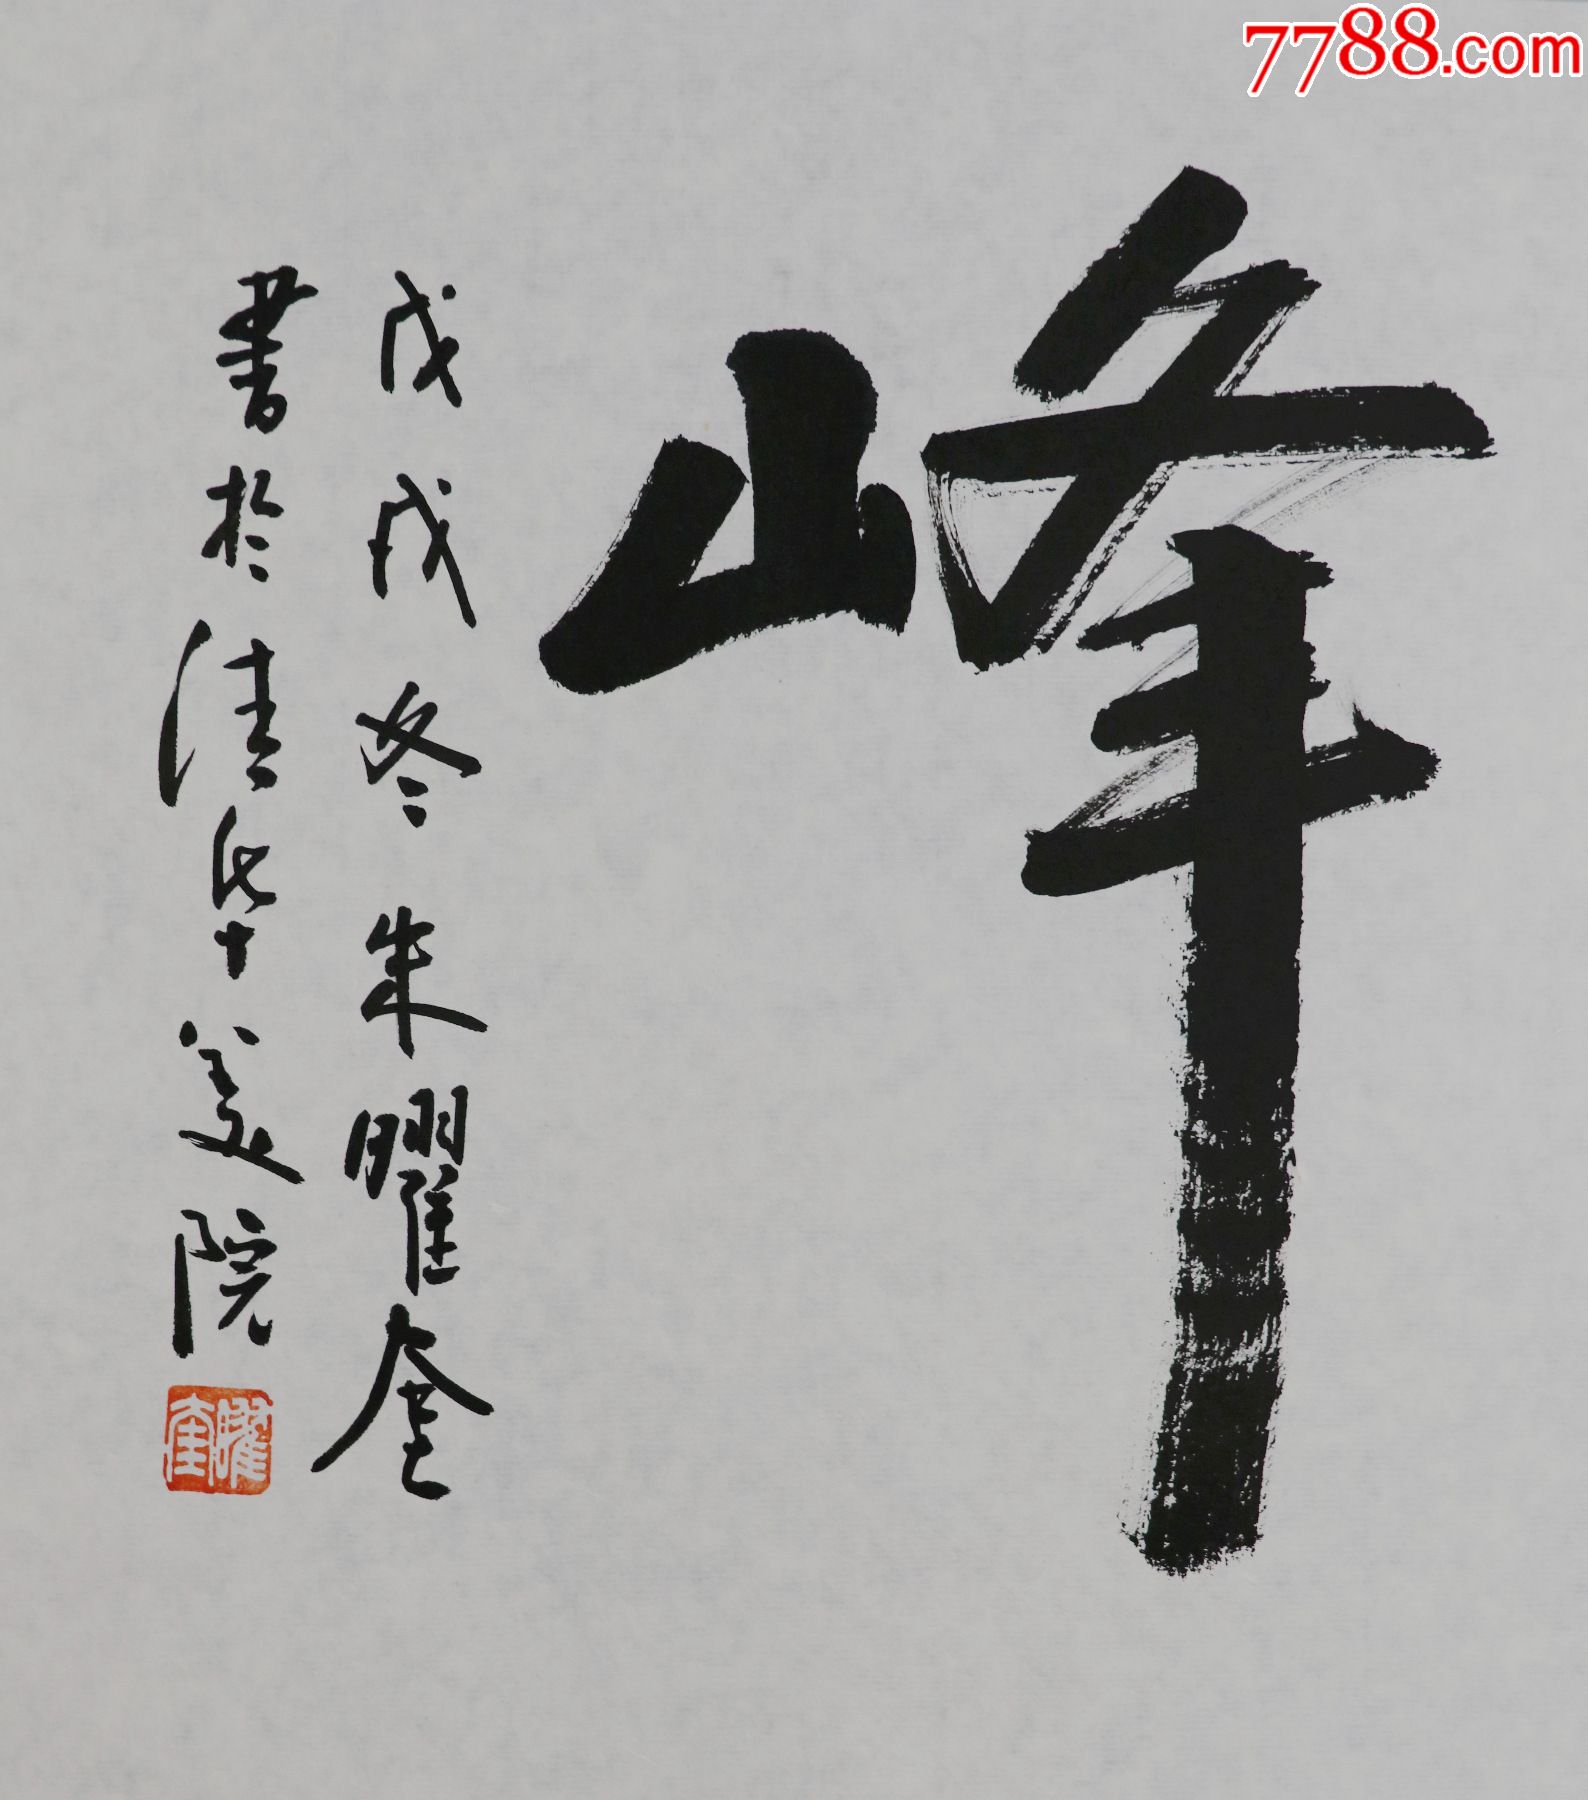 7788.com
峰
戊戌冬朱曜奎
書於清华美院
曜奎